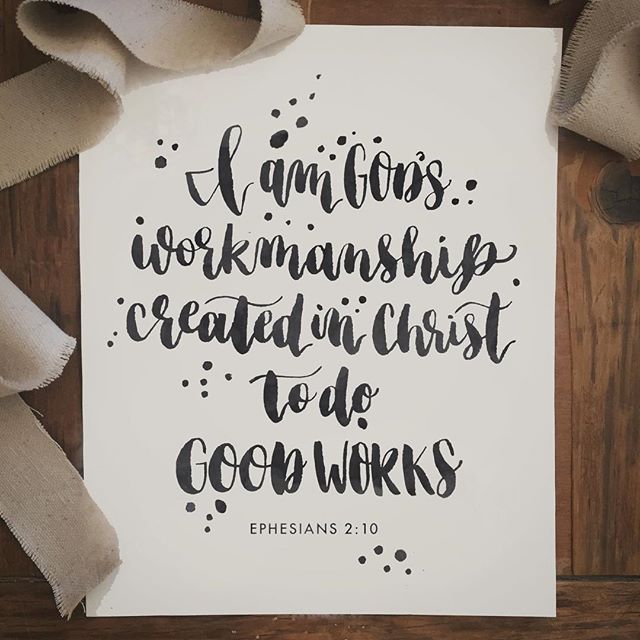 I am GOD'S
workmanship
created in Christ
to do
GOOD WORKS
EPHESIANS 2:10